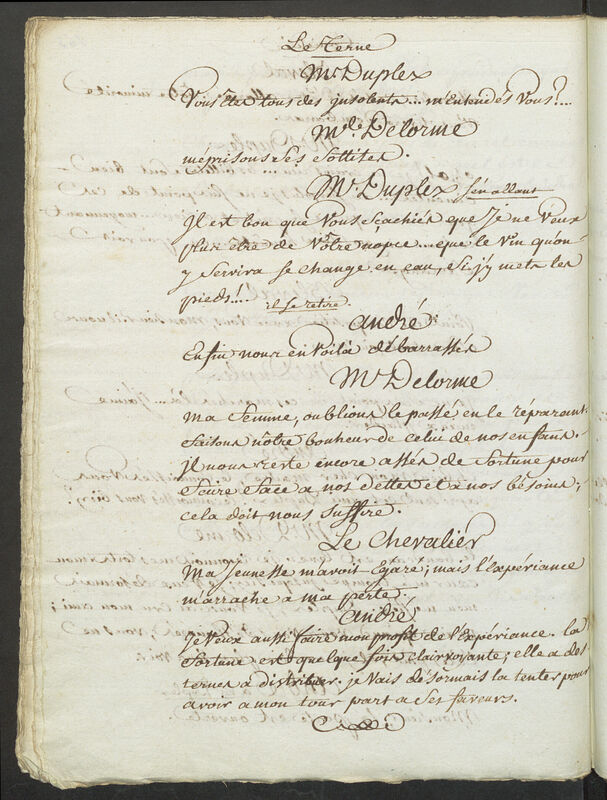 Le Terne
Mr. Duplex
Vous êtes tous des insolents... m'entendés Vous?...
Mde. Delorme
méprisons Ses Sottises.
Mr. Duplex S'en allant
Il est bon que Vous Sçachiés que Je ne Veux
plus être de Vôtre nopce... que le Vin qu'on
y Servira Se change en eau, Si j'y mets les
pieds!.. il Se retire.
André
Enfin nous en Voilà débarrassés
Mr. Delorme
Ma Femme, oublions le passé en le réparant.
faisons nôtre bonheur de celui de nos enfans.
il nous reste encore assés de fortune pour
faire face a nos dettes et a nos bésoins;
cela doit nous Suffire.
Le Chevalier
Ma jeunesse m'avoit Egaré; mais l'expériance
m'arrache a ma perte.
André
Je Veux aussi faire mon profit de l'expériance. la
fortune est quelque fois clairvoyante; elle a des
ternes a distribuer. je Vais désormais la tenter pour
avoir a mon tour part a Ses faveurs.